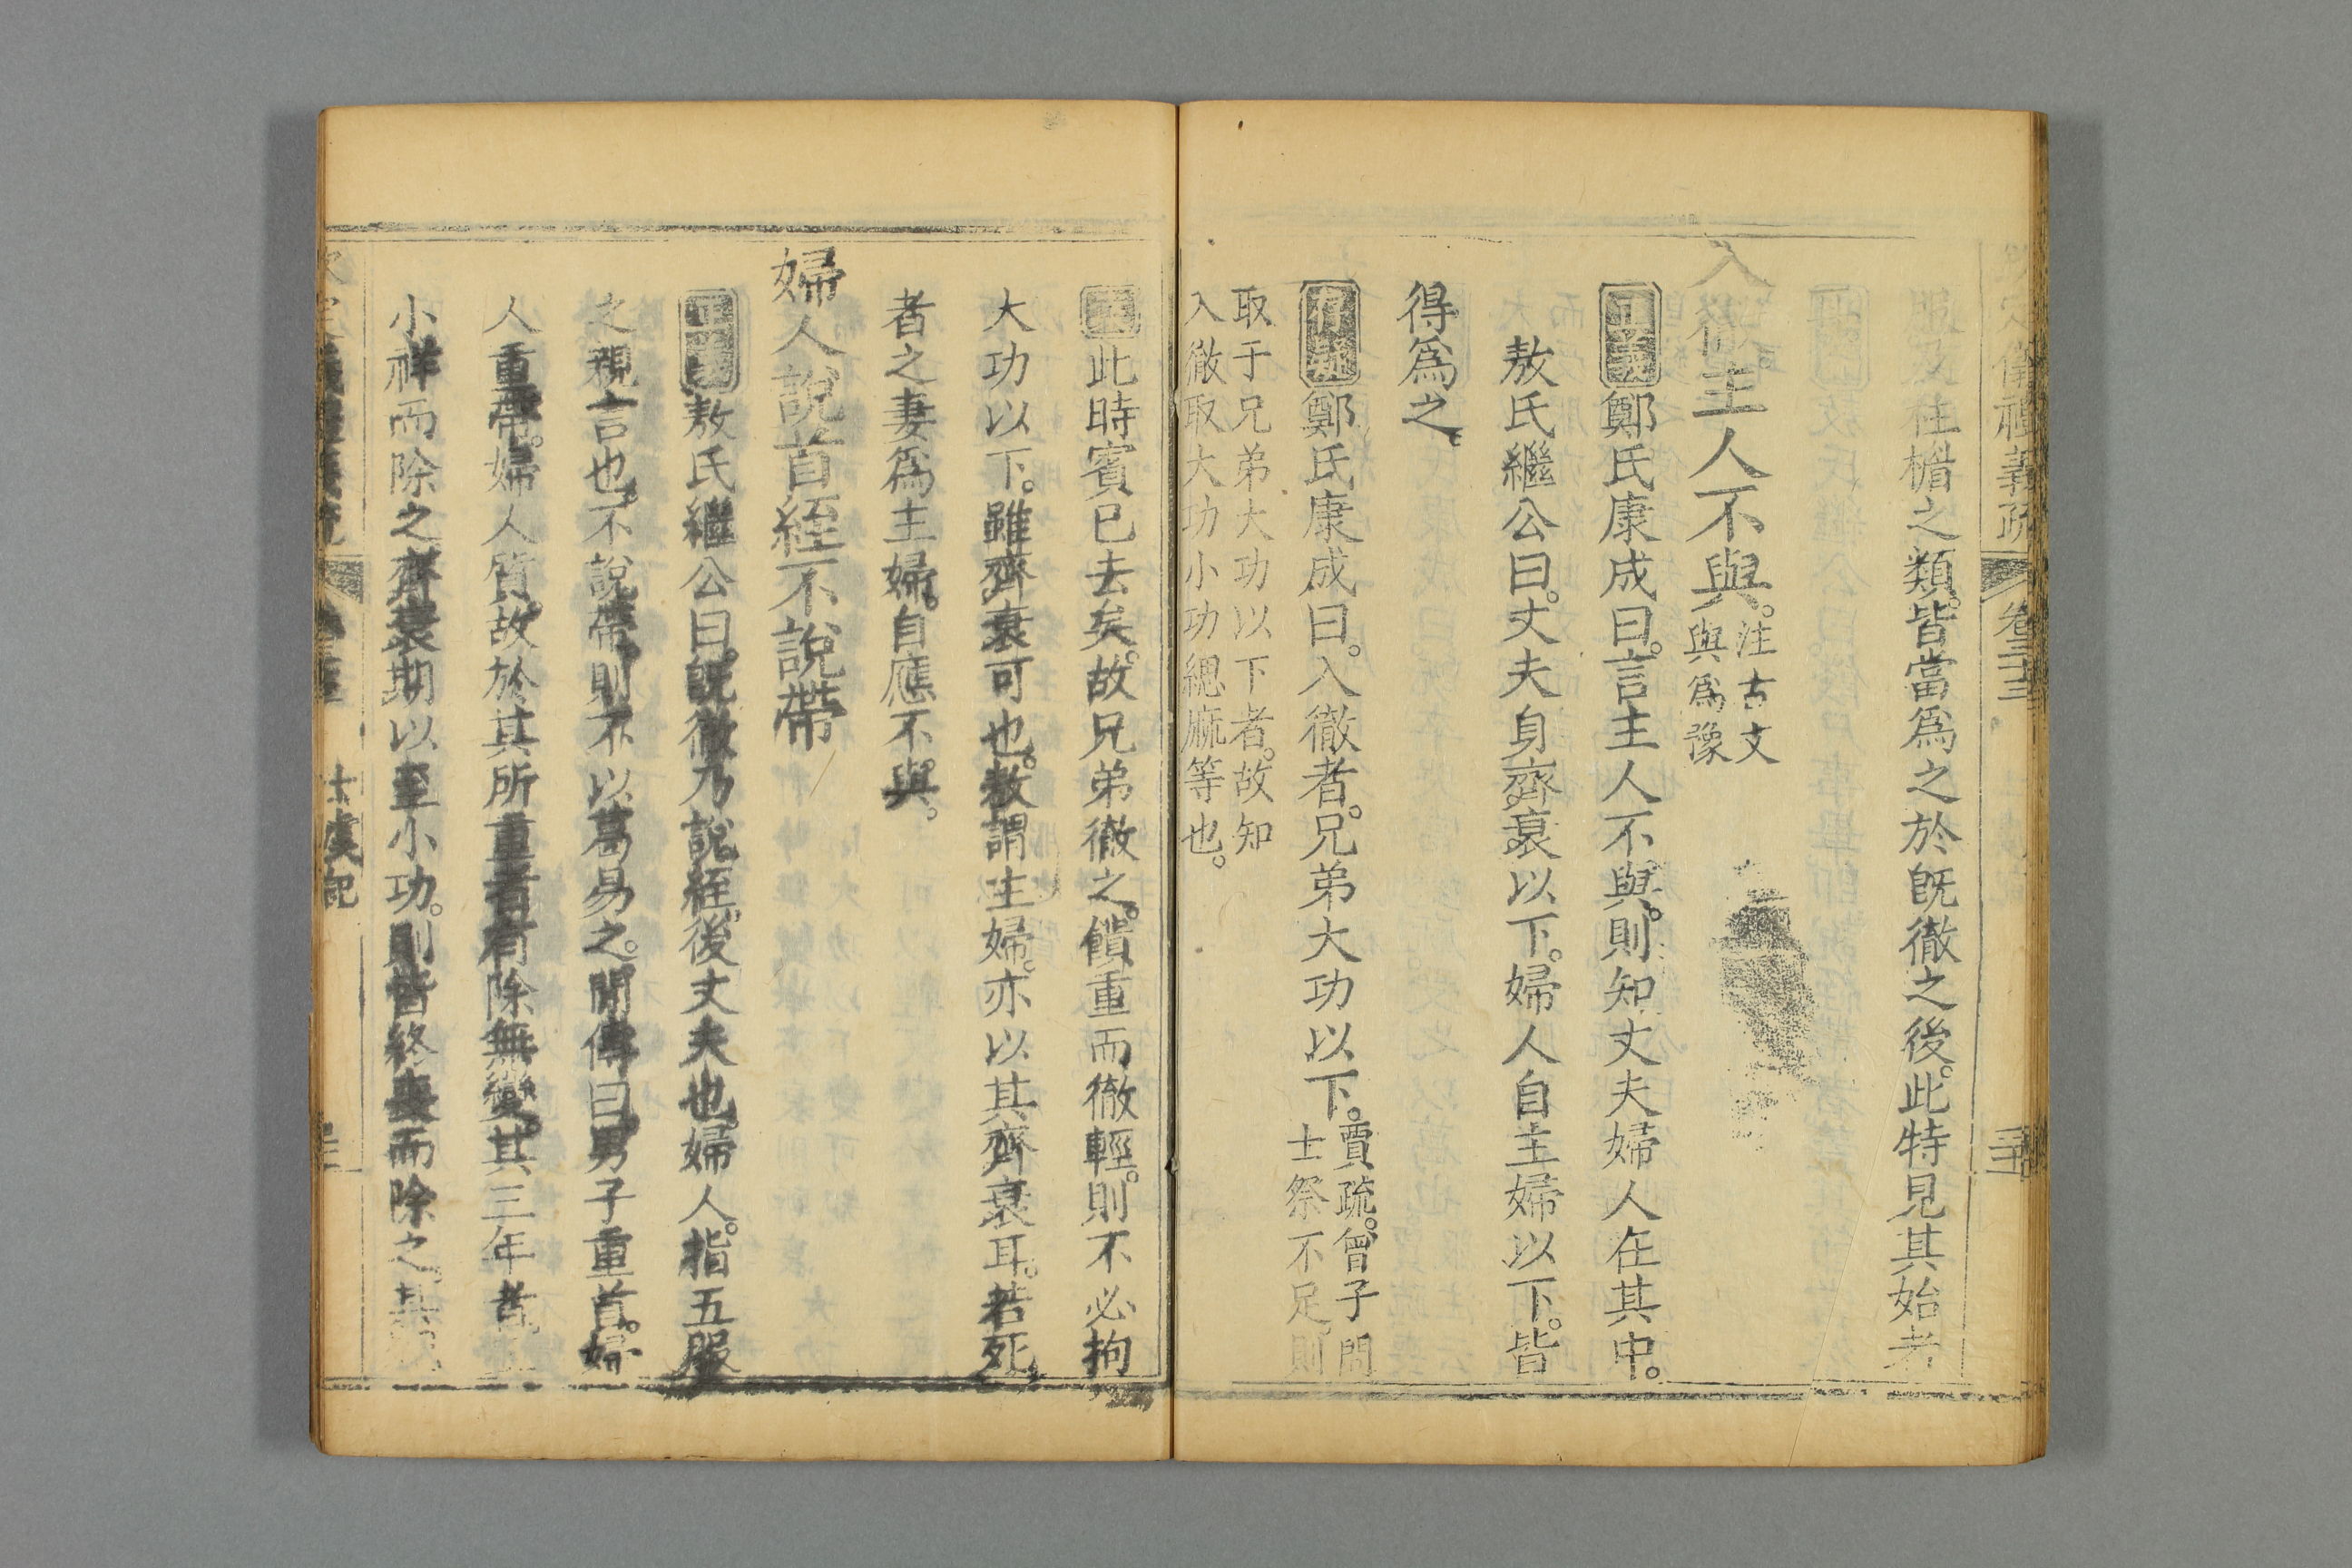 儀禮義疏 卷三十三
服及柱楣之類。皆當爲之於旣徹之後。此特見其始者
入徹主人不與。注古文
與爲豫
正義鄭氏康成曰。言主人不與。則知丈夫婦人在其中。
敖氏繼公曰。丈夫身齊衰以下。婦人自主婦以下。皆
得爲之。
存疑鄭氏康成曰。入徹者。兄弟大功以下。賈疏。曾子問
士祭不足。則
取于兄弟大功以下者。故知
入徹取大功小功緦麻等也。
此時賓已去矣。故兄弟徹之。饋重而徹輕。則不必拘
大功以下。雖齊衰可也。敖謂主婦。亦以其齊衰耳。若死
者之妻爲主婦。自應不與。
婦人說首絰不說帶
正義敖氏繼公曰。旣徹乃說絰。後丈夫也。婦人。指五服
之親言也。不說帶。則不以葛易之。間傳曰。男子重首。婦
人重帶。婦人質。故於其所重者。有除無變。其三年者。
小祥而除之。齊衰期以至小功。則皆終喪而除之。其
士虞記